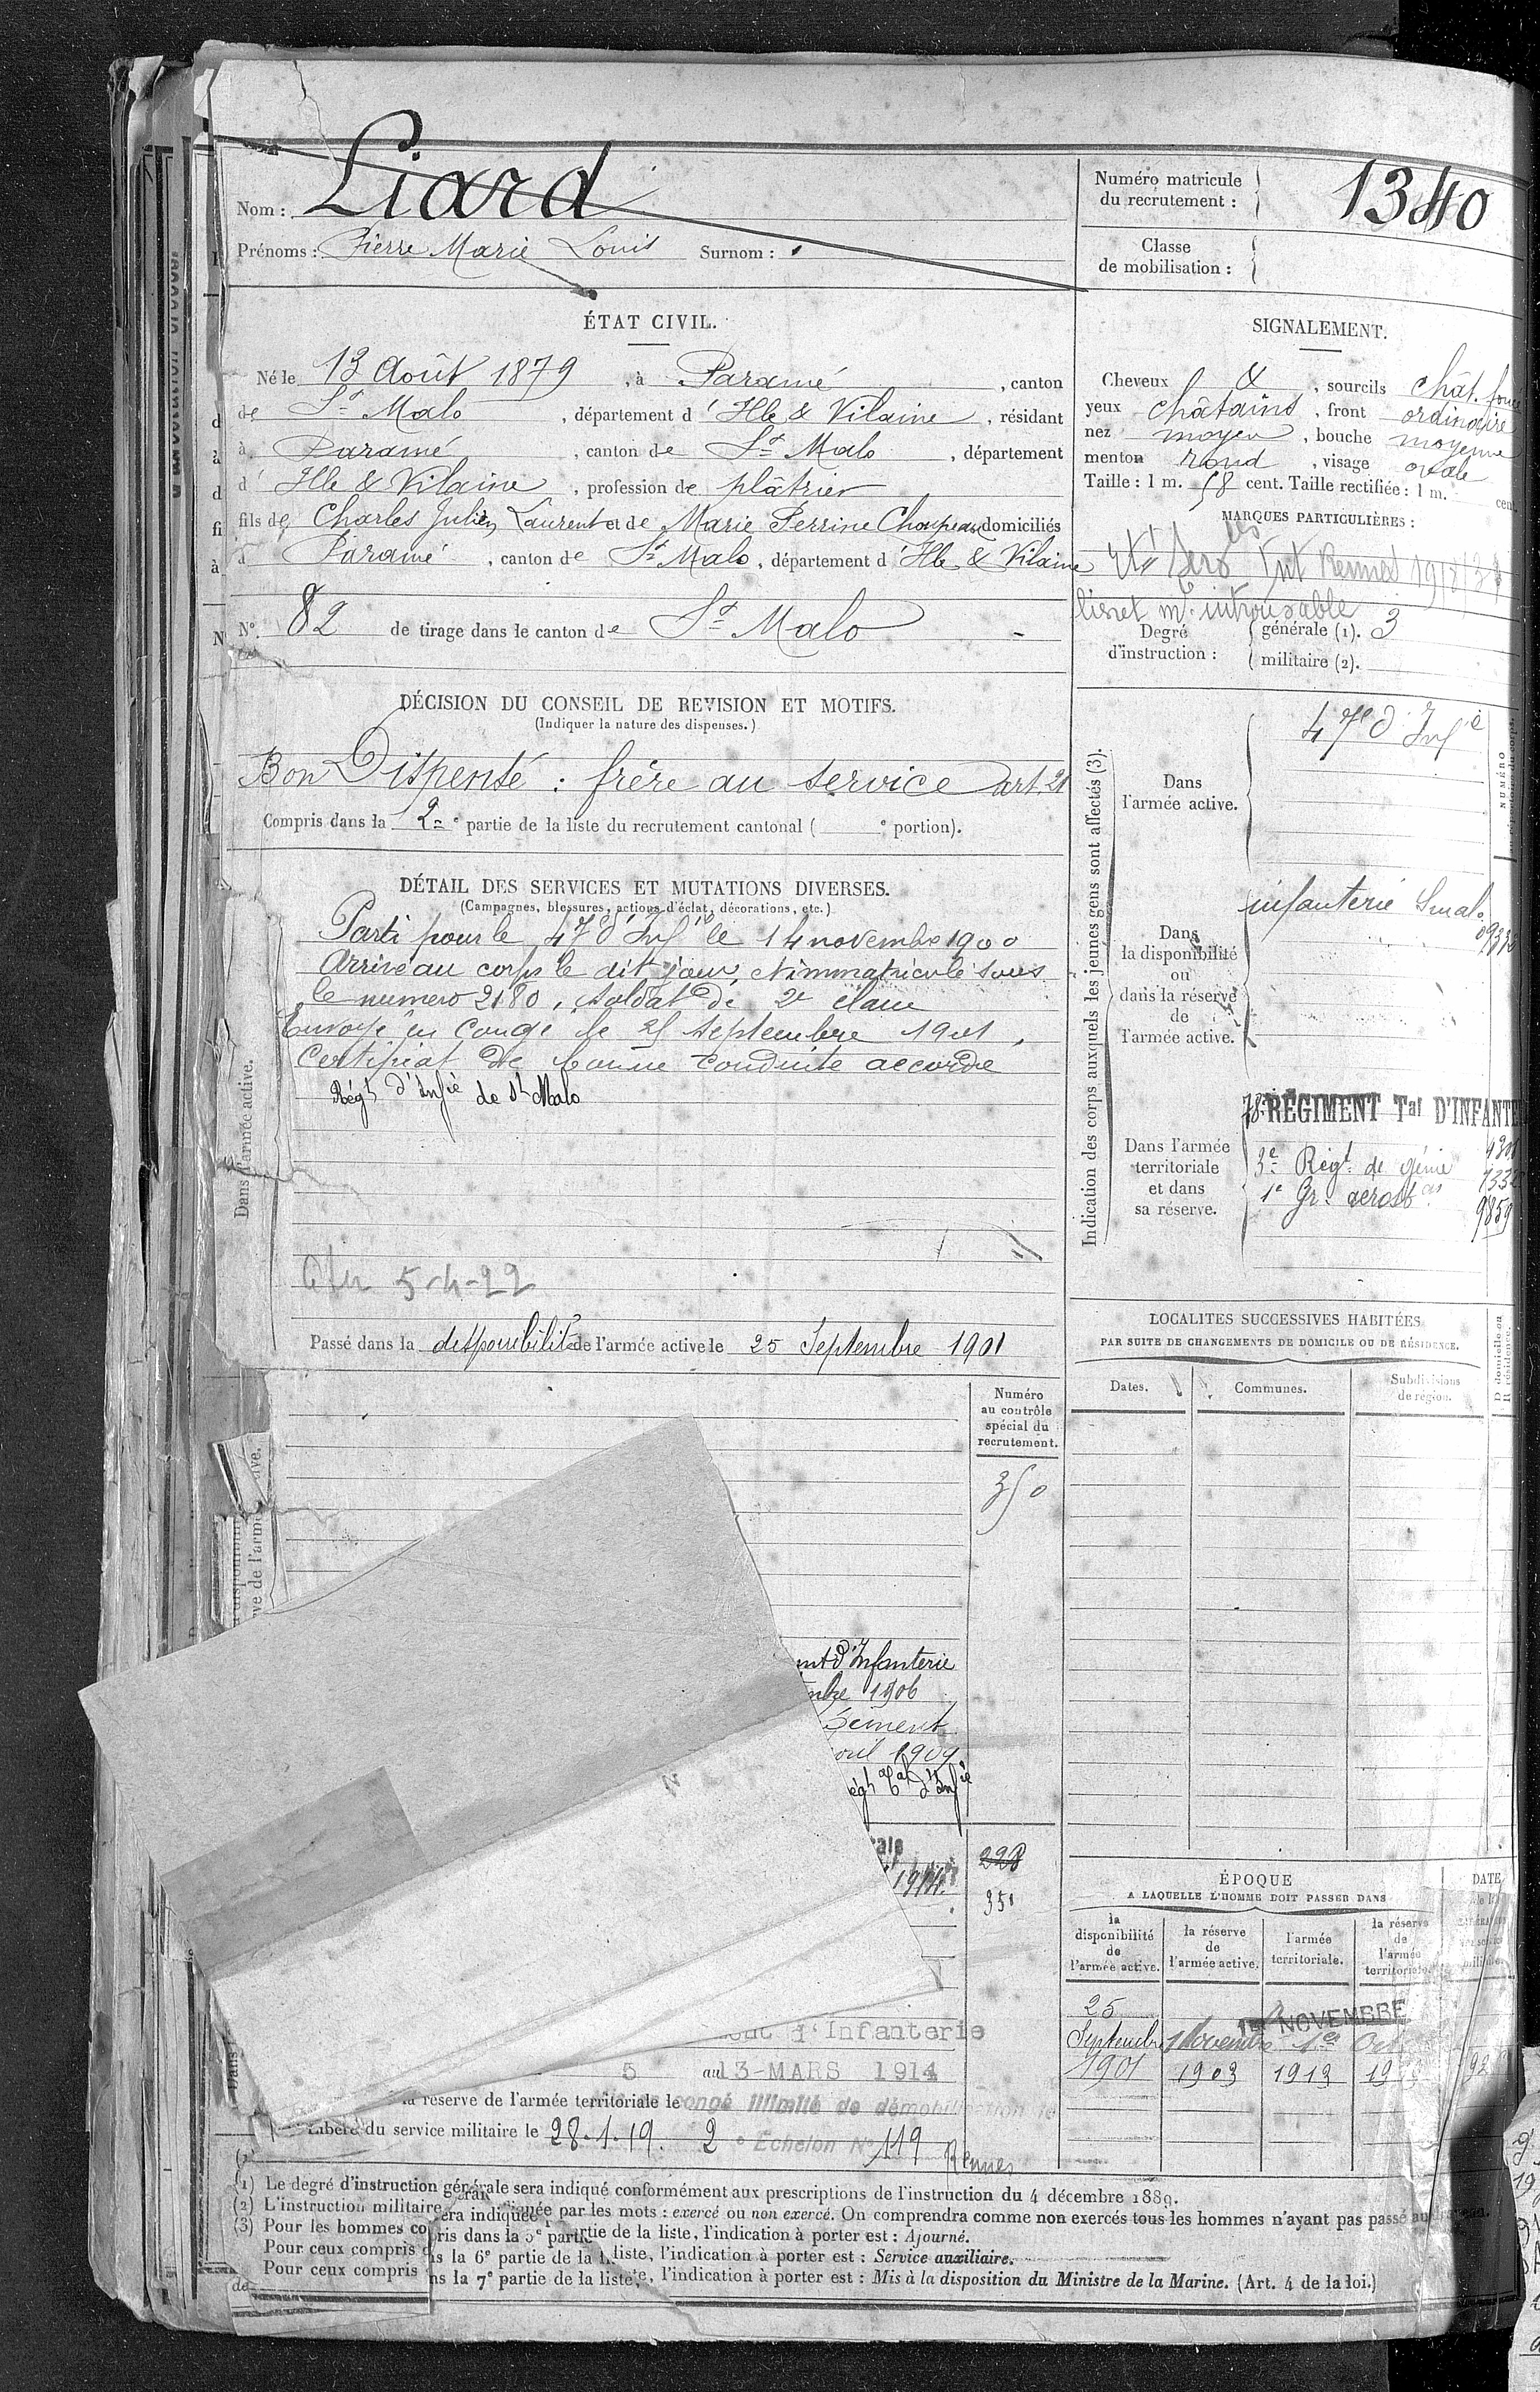 Nom : Liard
Prénoms : Pierre Marie Louis Surnom :
Numéro matricule du recrutement : 1340
Classe de mobilisation :
ÉTAT CIVIL.
Né le 13 Août 1879, à Paramé, canton
de St Malo, département d'Ille & Vilaine, résidant
à Paramé, canton de St Malo, département
d' Ille & Vilaine, profession de plâtrier
fils de Charles Julien Laurent et de Marie Perrine Choupeaux domiciliés
à Paramé, canton de St Malo, département d'Ille & Vilaine
N° 82 de tirage dans le canton de St Malo
SIGNALEMENT.
Cheveux &, sourcils chât. foncé
yeux châtains, front ordinaire
nez moyen, bouche moyenne
menton rond, visage ovale
Taille : 1 m. 58 cent. Taille rectifiée : 1 m. cent.
MARQUES PARTICULIÈRES :
Rennes
livret m. introuvable
Degré d'instruction :
générale (1). 3
militaire (2).
DÉCISION DU CONSEIL DE REVISION ET MOTIFS.
(Indiquer la nature des dispenses.)
Bon Dispensé : frère au service art. 21
Compris dans la 2e partie de la liste du recrutement cantonal ( e portion).
DÉTAIL DES SERVICES ET MUTATIONS DIVERSES.
(Campagnes, blessures, actions d'éclat, décorations, etc.)
Parti pour le 47e d'Infie le 14 novembre 1900
Arrivé au corps le dit jour, et immatriculé sous
le numero 2180, soldat de 2e classe
Envoyé en congé le 25 septembre 1901,
Certificat de bonne conduite accordé
Régt d'Infie de St Malo
5-4-22
Dans l'armée active.
Passé dans la disponibilité de l'armée active le 25 Septembre 1901
Indication des corps auxquels les jeunes gens sont affectés (3).
Dans l'armée active.
47e d'Infie
NUMÉRO
Dans la disponibilité ou dans la réserve de l'armée active.
infanterie St malo
Dans l'armée territoriale et dans sa réserve.
78e RÉGIMENT Tal D'INFANTE
3e Régt de génie
1e Gr. aerost
9859
LOCALITÉS SUCCESSIVES HABITÉES
PAR SUITE DE CHANGEMENTS DE DOMICILE OU DE RÉSIDENCE.
Dates. Communes. Subdivisions de région.
D domicile ou R résidence.
Numéro au contrôle spécial du recrutement.
350
d'Infanterie
1906
1909
égt Tal d'Infie
1914.
228
351
d'Infanterie
5 au 13-MARS 1914
la réserve de l'armée territoriale le congé illimité de démobilisation le
Libéré du service militaire le 28-1-19. 2e Echelon N° 119 Rennes
ÉPOQUE
A LAQUELLE L'HOMME DOIT PASSER DANS
la disponibilité de l'armée active.
la réserve de l'armée active.
l'armée territoriale.
la réserve de l'armée territoriale.
DATE
25 Septembre 1901
1 Novembre 1903
1er NOVEMBRE
1er Oct
1913
(1) Le degré d'instruction générale sera indiqué conformément aux prescriptions de l'instruction du 4 décembre 1889.
(2) L'instruction militaire sera indiquée par les mots : exercé ou non exercé. On comprendra comme non exercés tous les hommes n'ayant pas passé au drapeau.
(3) Pour les hommes compris dans la 5e partie de la liste, l'indication à porter est : Ajourné.
Pour ceux compris dans la 6e partie de la liste, l'indication à porter est : Service auxiliaire.
Pour ceux compris dans la 7e partie de la liste, l'indication à porter est : Mis à la disposition du Ministre de la Marine. (Art. 4 de la loi.)